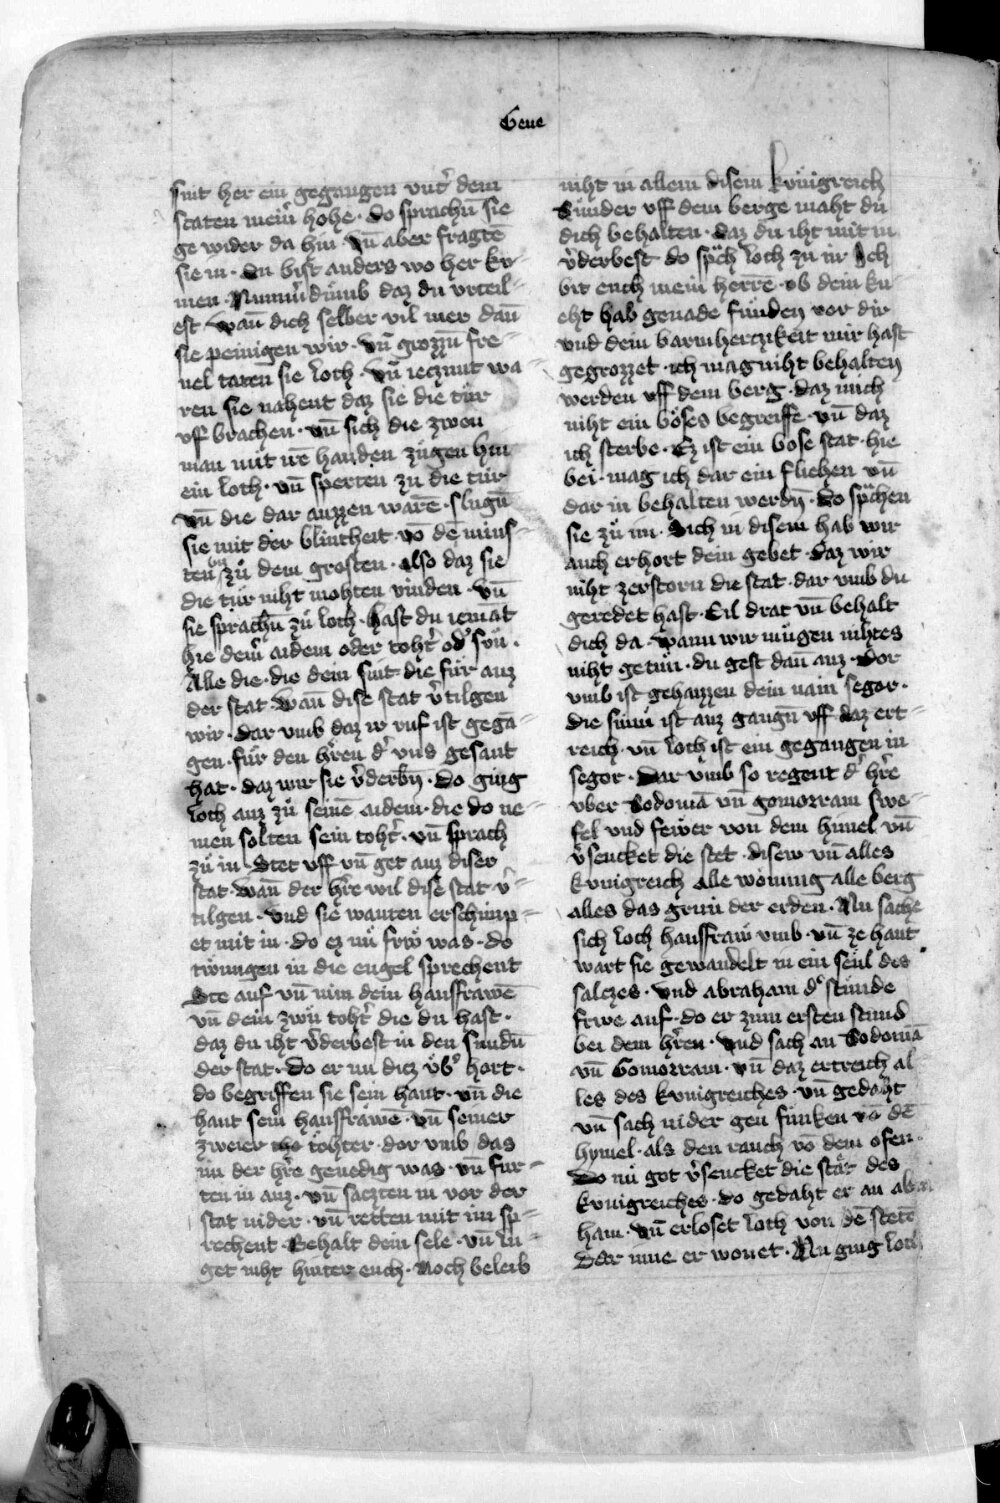 Gene
sint her ein gegangen vnt̾ dem
scaten mein̾ hohe · do sprachn̄ sie
ge wider da hin · Vn̄ aber fragtē
sie in · du bist anders wo her ku-
men · Numm̾ dumb daz du vrteil-
est wan̄ dich selber vil mer dan̄
sie peinigen wir · vn̄ grozzn̄ fre-
uel taten sie loth · vn̄ ieczunt wa-
ren sie nahent daz sie die tür
vff brachen · vn̄ sich die zwen
man mit irē handen zůgen hin
ein loth · vn̄ sperten zu die tür
vn̄ die dar auzzen warē · slugn̄
sie mit der blintheit · vō dē mins-
ten biz zů dem grosten · also daz sie
die tür niht mohten vinden · vn̄
sie sprachn̄ zů loth · hast du iemāt
hie dein̾ aidem oder toht̾ od̾ sün ·
Alle die · die dein sint die für auz
der stat · wan̄ dise stat v̾tilgen
wir · dar vmb daz ir ruf ist gegā-
gen · für den hr̄en d̾ vns gesant
hat · daz wir sie v̾derbn̄ · do ging
loth auz zů seinē aidem · die do ne-
men solten sein toht̾ · vn̄ sprach
zů in · Stet vff vn̄ get auz diser
stat · wan̄ der hr̄e wil dise stat v̾-
tilgen · vnd sie wanten erschimp-
et mit in · do ez nů frů was · do
twungen in die engel sprechent
Ste auf vn̄ nim dein hausfrawē
vn̄ dein zwů toht̾ die du hast ·
daz du iht v̾derbest in den sundn̄
der stat · do er nu dicz vb̾ hort ·
do begriffen sie sein hant · vn̄ die
hant sein̾ hausfrawē · vn̄ seiner
zweier tohter · dor vmb das
im der hr̄e genedig was · vn̄ fur-
ten in auz · vn̄ saczten in vor der
stat nider · vn̄ retten mit im sp-
rechent · Behalt dein sele · vn̄ lu-
get niht hinter euch · Noch beleib
niht in allem disem kunigreich
Sunder vff dem berge maht du
dich behalten · daz du iht mit in
v̾derbest do sp̾ch loth zu in̾ Ich
bit euch mein herrē · ob dein kn
eht hab genade funden vor dir
vnd dein barmherczikeit mir hast
gegrozzet · ich mag niht behalten
werden vff dem berg · daz mich
niht ein böses begreiffe · vn̄ daz
ich sterbe · Ez ist ein bose stat · hie
bei · mag ich dar ein fliehen vn̄
dar in behalten werdn̄ · do sp̾chen
sie zů im · Sich in disem hab wir
auch erhort dein gebet · daz wir
niht zerstorn die stat · dar vmb du
geredet hast · Eil drat vn̄ behalt
dich da · wann wir mügen nihtes
niht getün · du gest dan̄ auz · dor
vmb ist gehaizzen dein nam segor ·
die sunn ist auz gangn̄ vff daz ert-
reich · vn̄ loth ist ein gegangen in
segor · Dar vmb so regent d̾ hr̄e
vber Sodomā vn̄ gomorram swe-
fel vnd fewer von dem himel vn̄
v̾sencket die stet · disew vn̄ alles
kunigreich alle wonung alle berg
alles das grun der erden · Nu sache
sich loth hausfraw vmb · vn̄ ze hant
wart sie gewandelt in ein seül des
salczes · vnd abraham d̾ stünde
frwe auf · do er zum ersten stund
bei dem hr̄en · vnd sach an Sodomā
vn̄ Gomorram · vn̄ daz ertreich al
les des kunigreiches · vn̄ gedaht
vn̄ sach nider gen funken vō dē
hymel · als den rauch vō dem ofen ·
Do nů got v̾sencket die stät des
kunigreiches · do gedaht er an abra
ham · vn̄ erloset loth von dē stetē
Der inne er wonet · Nu ging loth